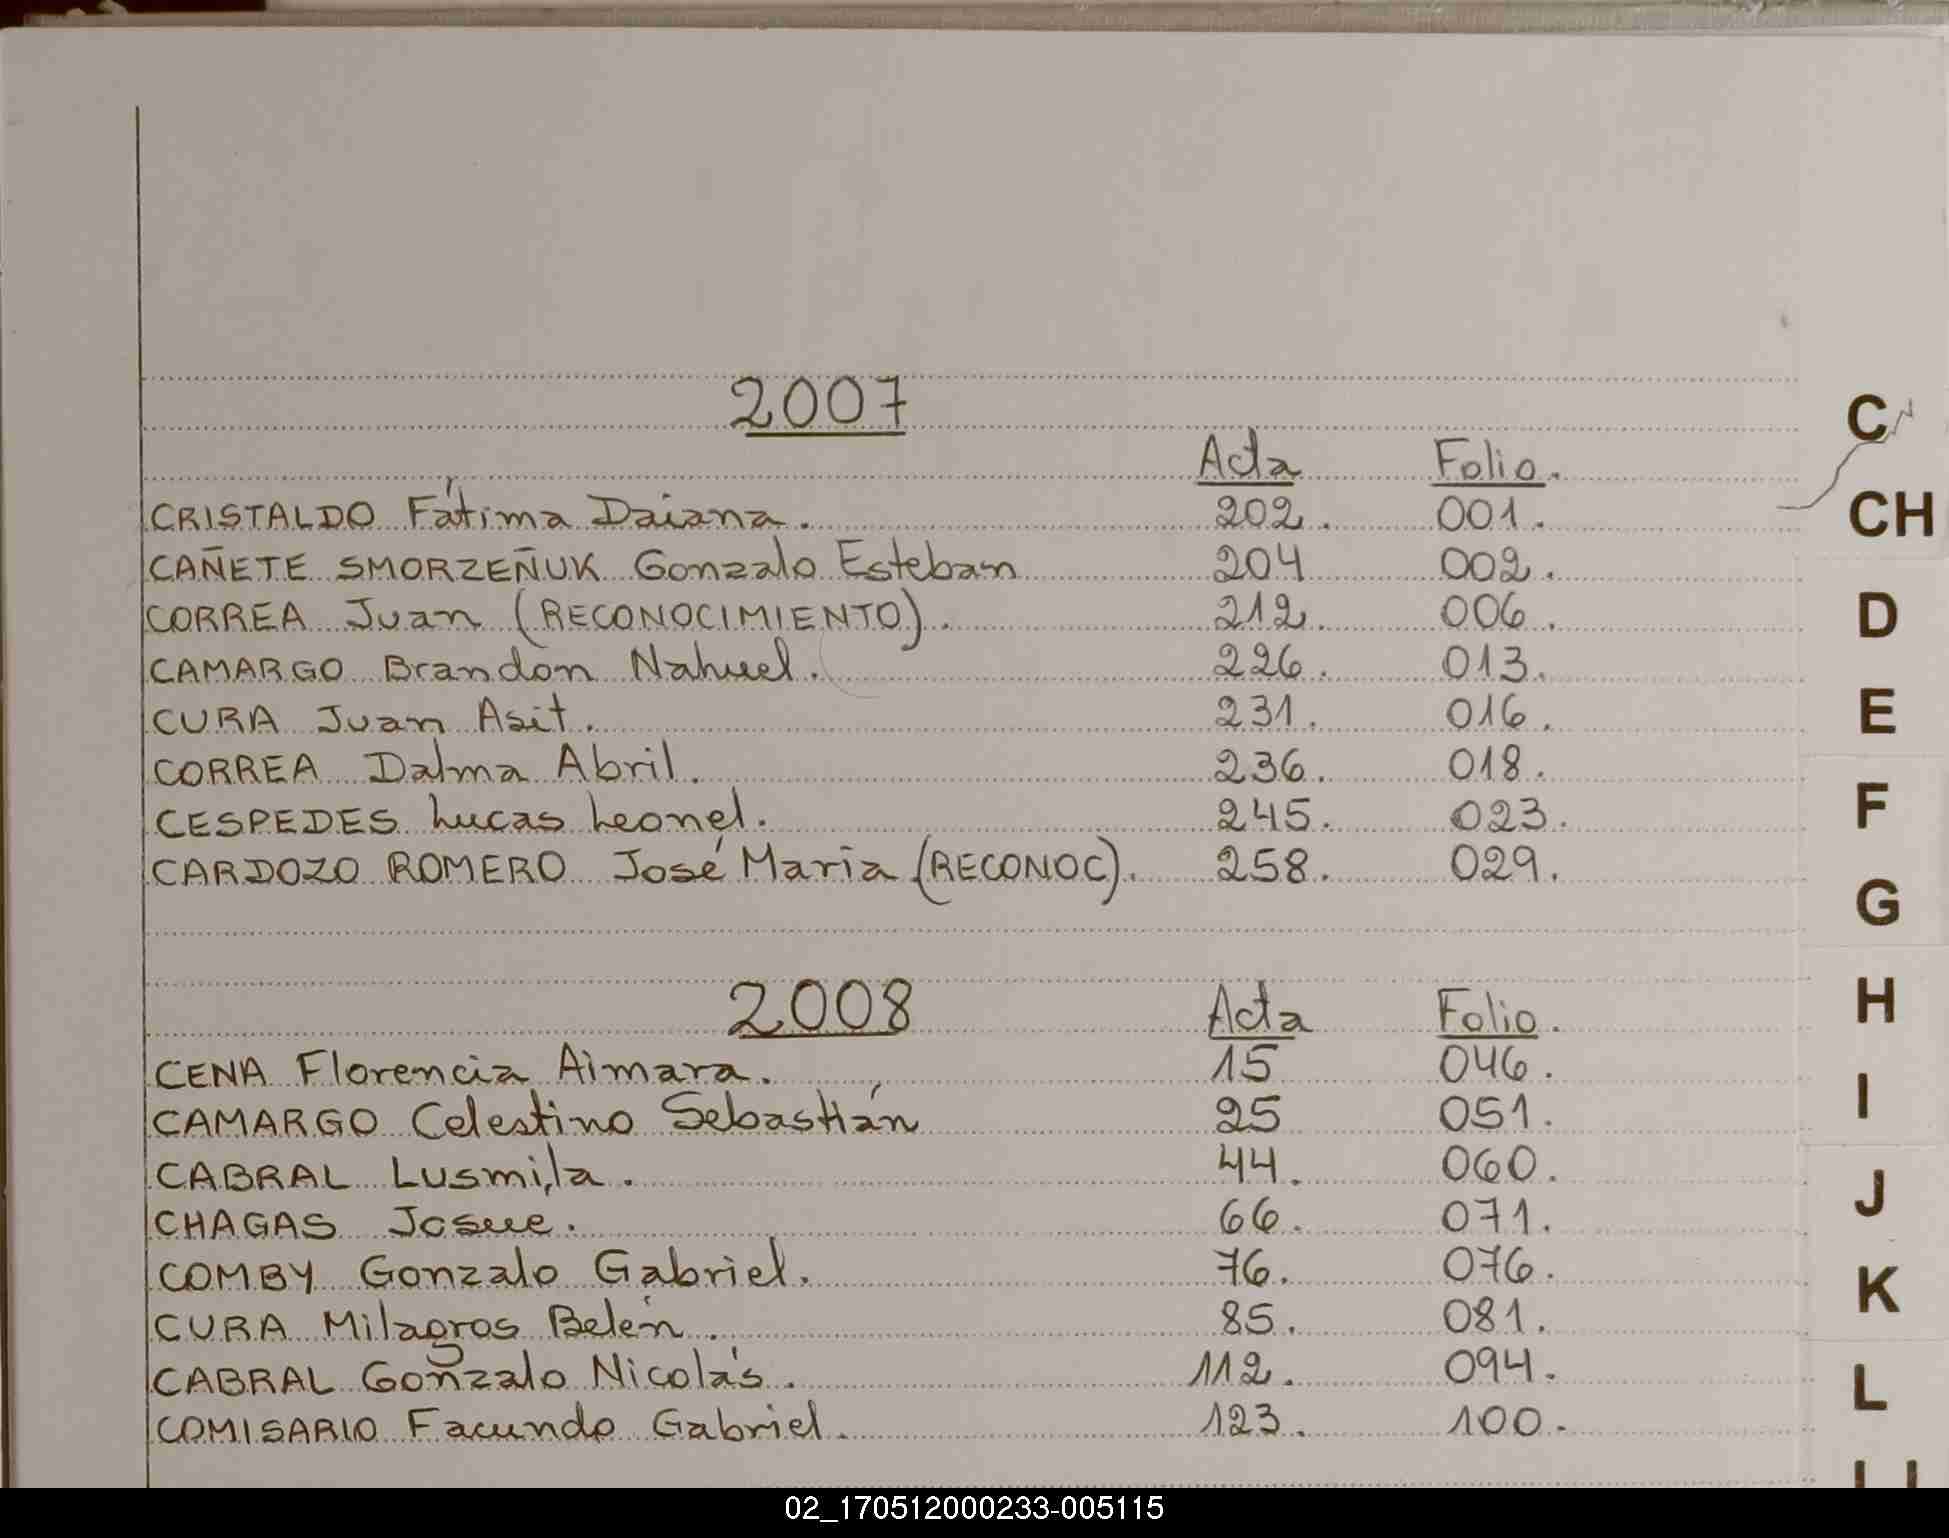 2007
Acta Folio.
CRISTALDO Fátima Daiana. 202. 001.
CAÑETE SMORZEÑUK Gonzalo Esteban 204 002.
CORREA Juan (RECONOCIMIENTO). 212. 006.
CAMARGO Brandon Nahuel. 226. 013.
CURA Juan Asit. 231. 016.
CORREA Dalma Abril. 236. 018.
CESPEDES Lucas Leonel. 245. 023.
CARDOZO ROMERO José Maria (RECONOC). 258. 029.
2008 Acta Folio.
CENA Florencia Aimara. 15 046.
CAMARGO Celestino Sebastián 25 051.
CABRAL Lusmila. 44. 060.
CHAGAS Josue. 66. 071.
COMBY Gonzalo Gabriel. 76. 076.
CURA Milagros Belén. 85. 081.
CABRAL Gonzalo Nicolás. 112. 094.
COMISARIO Facundo Gabriel. 123. 100.
C
CH
D
E
F
G
H
I
J
K
L
02_170512000233-005115